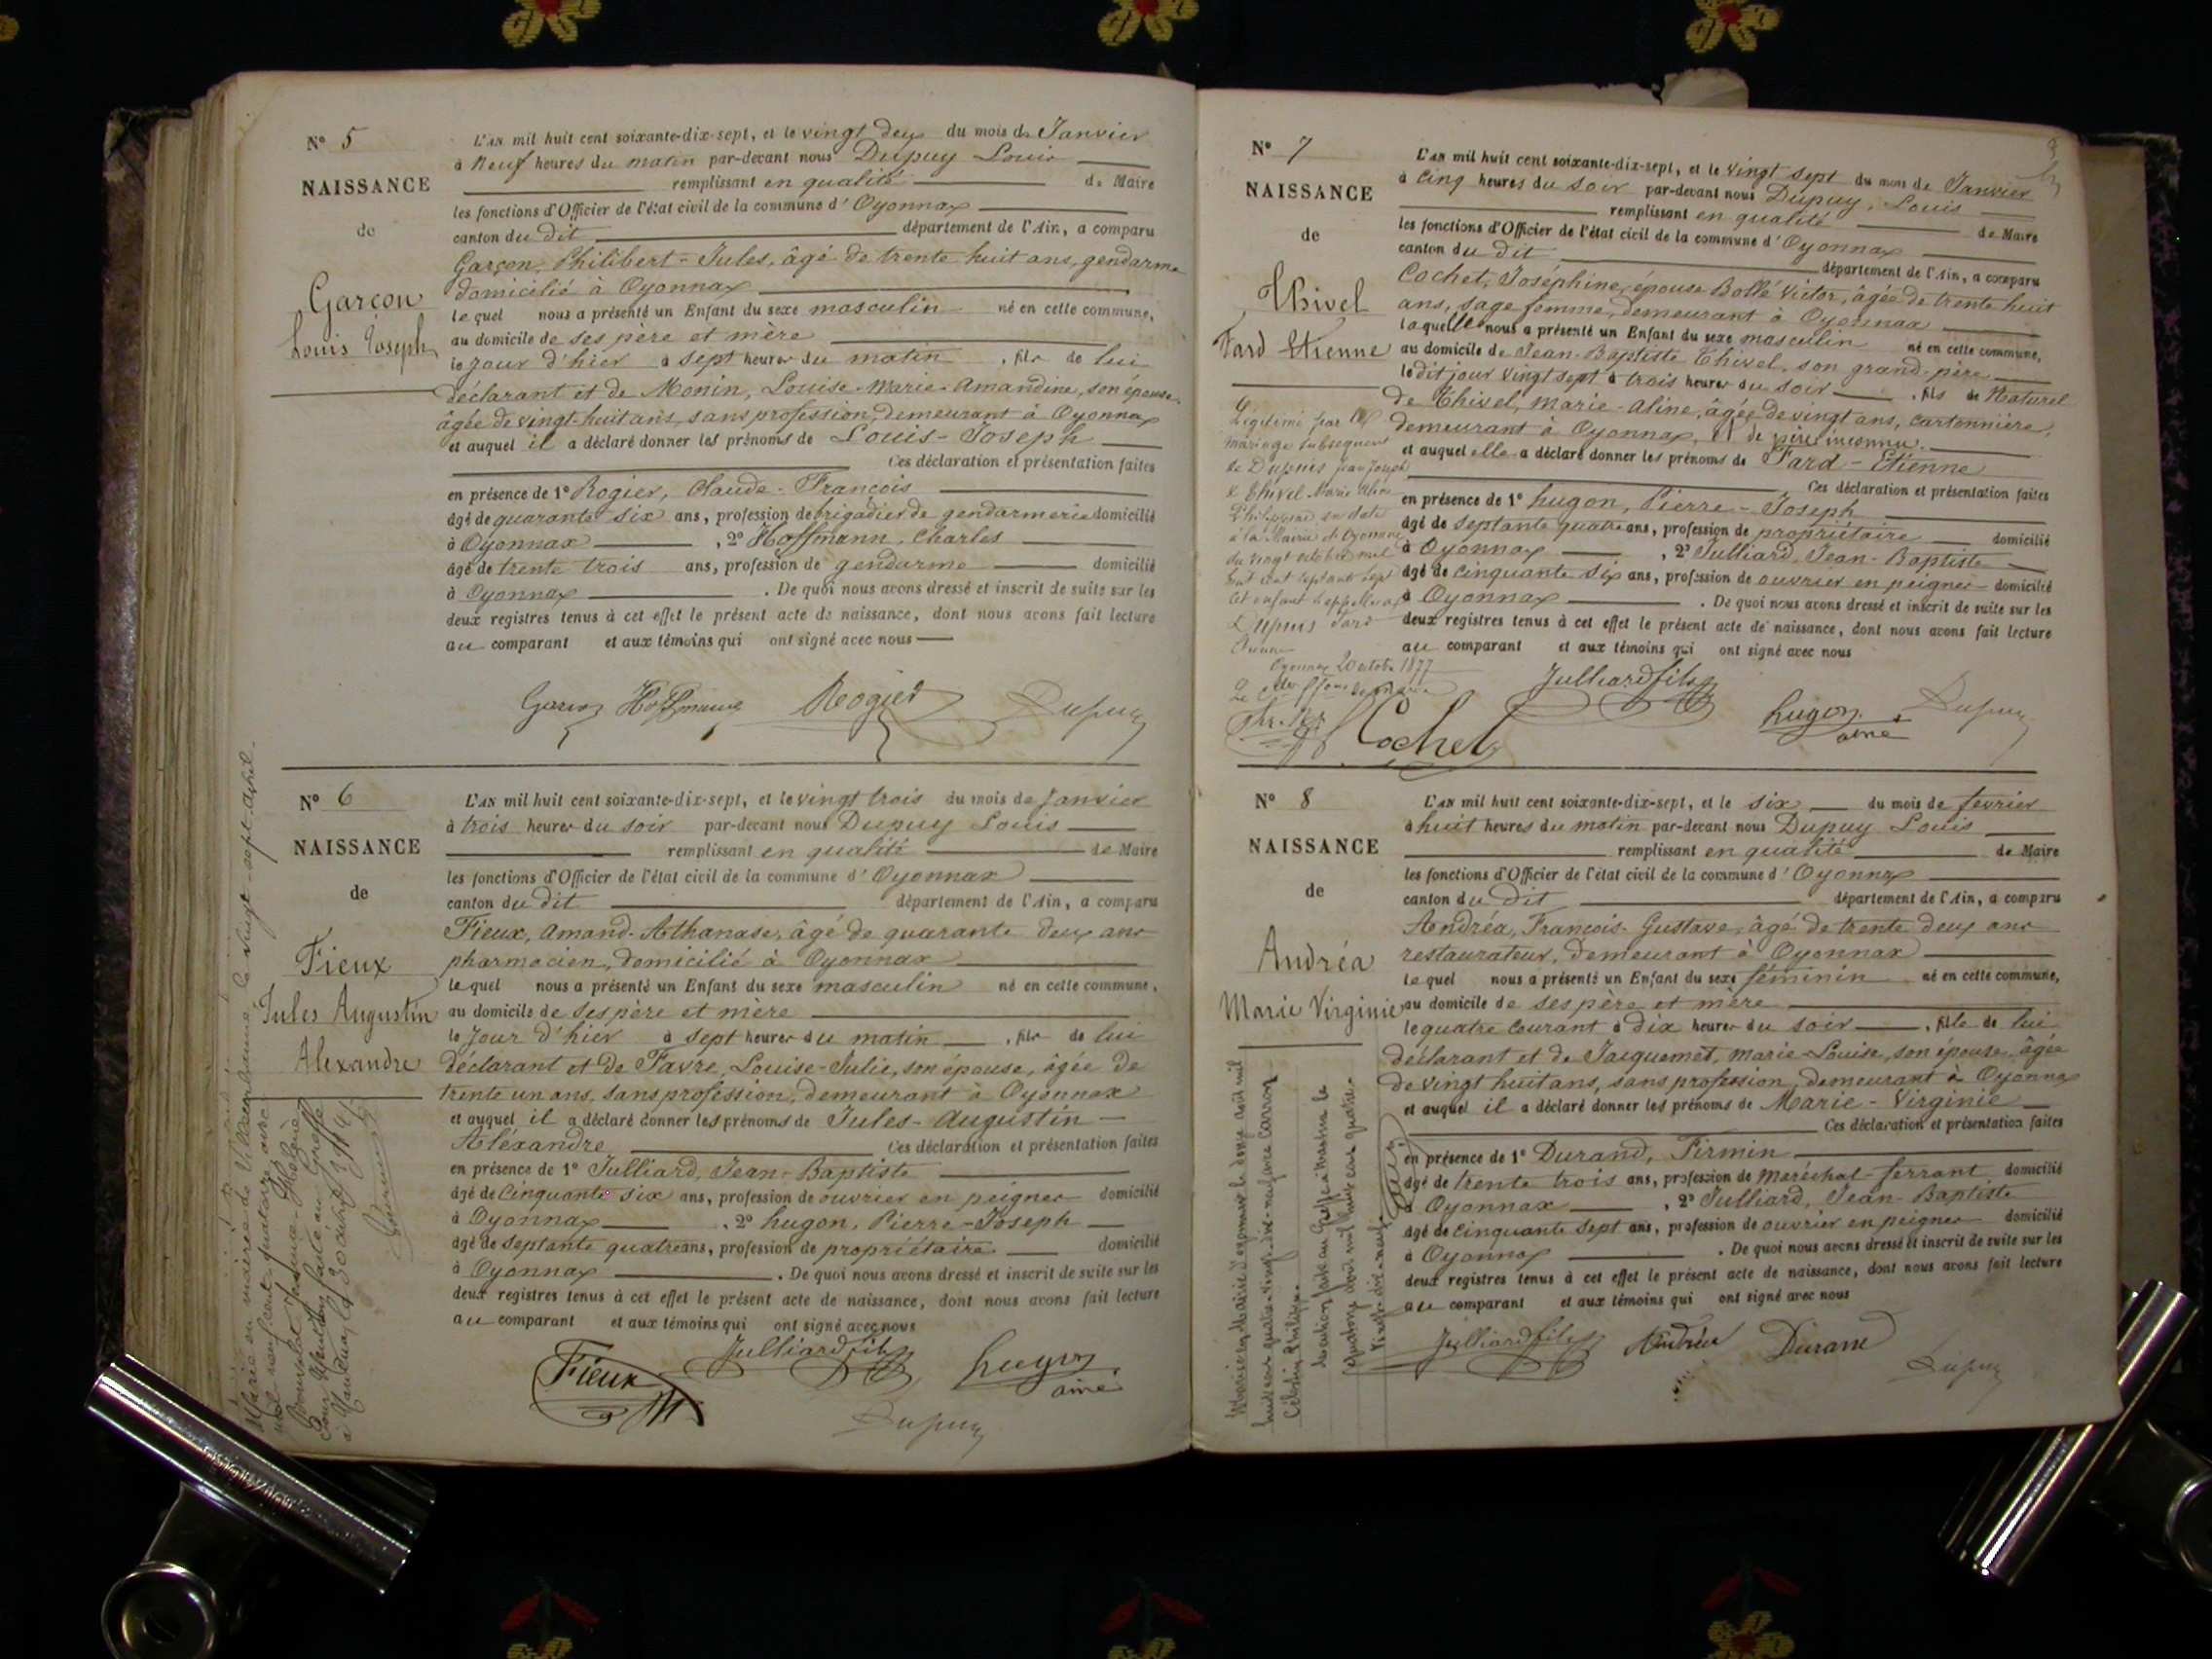 N° 5
NAISSANCE
de
Garçon
Louis Joseph
L'AN mil huit cent soixante-dix-sept, et le vingt deux du mois de Janvier
à Neuf heures du matin par-devant nous Dupuy Louis
remplissant en qualité de Maire
les fonctions d'Officier de l'état civil de la commune d'Oyonnax
canton du dit département de l'Ain, a comparu
Garçon, Philibert-Jules, âgé de trente huit ans, gendarme
domicilié à Oyonnax
lequel nous a présenté un Enfant du sexe masculin né en cette commune,
au domicile de ses père et mère
le jour d'hier à sept heures du matin, fils de lui
déclarant et de Monin, Louise-Marie-Amandine, son épouse,
âgée de vingt-huit ans, sans profession, demeurant à Oyonnax
et auquel il a déclaré donner les prénoms de Louis-Joseph
Ces déclaration et présentation faites
en présence de 1° Rogier, Claude-François
âgé de quarante six ans, profession de brigadier de gendarmerie domicilié
à Oyonnax, 2° Hoffmann, Charles
âgé de trente trois ans, profession de gendarme domicilié
à Oyonnax. De quoi nous avons dressé et inscrit de suite sur les
deux registres tenus à cet effet le présent acte de naissance, dont nous avons fait lecture
au comparant et aux témoins qui ont signé avec nous
Garçon Hoffmann Rogier Dupuy
N° 6
NAISSANCE
de
Fieux
Jules Augustin
Alexandre
Marié en mairie de le vingt-sept avril
mil neuf cent quatorze avec
L'AN mil huit cent soixante-dix-sept, et le vingt trois du mois de Janvier
à trois heures du soir par-devant nous Dupuy Louis
remplissant en qualité de Maire
les fonctions d'Officier de l'état civil de la commune d'Oyonnax
canton du dit département de l'Ain, a comparu
Fieux, Amand-Athanase, âgé de quarante deux ans
pharmacien, domicilié à Oyonnax
lequel nous a présenté un Enfant du sexe masculin né en cette commune,
au domicile de ses père et mère
le jour d'hier à sept heures du matin, fils de lui
déclarant et de Favre, Louise-Julie, son épouse, âgée de
trente un ans, sans profession, demeurant à Oyonnax
et auquel il a déclaré donner les prénoms de Jules-Augustin-
Aléxandre Ces déclaration et présentation faites
en présence de 1° Julliard, Jean-Baptiste
âgé de Cinquante six ans, profession de ouvrier en peignes domicilié
à Oyonnax, 2° hugon, Pierre-Joseph
âgé de septante quatre ans, profession de propriétaire domicilié
à Oyonnax. De quoi nous avons dressé et inscrit de suite sur les
deux registres tenus à cet effet le présent acte de naissance, dont nous avons fait lecture
au comparant et aux témoins qui ont signé avec nous
Fieux Julliard fils hugon
ainé
Dupuy
N° 7
NAISSANCE
de
Thivel
Fard Etienne
Légitimé par le
mariage subséquent
de Dupuis Jean Joseph
& Thivel Marie Aline
Philippine en date
à la Mairie d'Oyonnax
du vingt octobre mil
huit cent septante sept
Cet enfant s'appellera
Dupuis Fard
Etienne
Oyonnax 20 octobre 1877
L'AN mil huit cent soixante-dix-sept, et le vingt sept du mois de Janvier
à Cinq heures du soir par-devant nous Dupuy, Louis
remplissant en qualité de Maire
les fonctions d'Officier de l'état civil de la commune d'Oyonnax
canton du dit département de l'Ain, a comparu
Cochet, Joséphine, épouse Bollé Victor, âgée de trente huit
ans, sage femme, demeurant à Oyonnax
laquelle nous a présenté un Enfant du sexe masculin né en cette commune,
au domicile de Jean-Baptiste Thivel, son grand-père
le dit jour vingt sept à trois heures du soir, fils de Naturel
de Thivel, Marie-Aline, âgée de vingt ans, cartonnière,
demeurant à Oyonnax, et de père inconnu.
et auquel elle a déclaré donner les prénoms de Fard-Etienne
Ces déclaration et présentation faites
en présence de 1° hugon, Pierre-Joseph
âgé de septante quatre ans, profession de propriétaire domicilié
à Oyonnax, 2° Julliard, Jean-Baptiste
âgé de cinquante six ans, profession de ouvrier en peignes domicilié
à Oyonnax. De quoi nous avons dressé et inscrit de suite sur les
deux registres tenus à cet effet le présent acte de naissance, dont nous avons fait lecture
au comparant et aux témoins qui ont signé avec nous
Julliard fils
Cochet hugon Dupuy
ainé
N° 8
NAISSANCE
de
Andréa
Marie Virginie
Mariée en mairie d'Oyonnax le douze août mil
huit cent quatre-vingt-dix-neuf avec Carron
Célestin Philippe
L'AN mil huit cent soixante-dix-sept, et le six du mois de fevrier
à huit heures du matin par-devant nous Dupuy Louis
remplissant en qualité de Maire
les fonctions d'Officier de l'état civil de la commune d'Oyonnax
canton du dit département de l'Ain, a comparu
Andréa, François-Gustave, âgé de trente deux ans
restaurateur, demeurant à Oyonnax
lequel nous a présenté un Enfant du sexe féminin né en cette commune,
au domicile de ses père et mère
le quatre Courant à dix heures du soir, fille de lui
déclarant et de Jacquemet, Marie-Louise, son épouse âgée
de vingt huit ans, sans profession, demeurant à Oyonnax
et auquel il a déclaré donner les prénoms de Marie-Virginie
Ces déclaration et présentation faites
en présence de 1° Durand, Firmin
âgé de trente trois ans, profession de Maréchal-ferrant domicilié
à Oyonnax, 2° Julliard, Jean-Baptiste
âgé de cinquante sept ans, profession de ouvrier en peignes domicilié
à Oyonnax. De quoi nous avons dressé et inscrit de suite sur les
deux registres tenus à cet effet le présent acte de naissance, dont nous avons fait lecture
au comparant et aux témoins qui ont signé avec nous
Julliard fils Andréa Durand
Dupuy